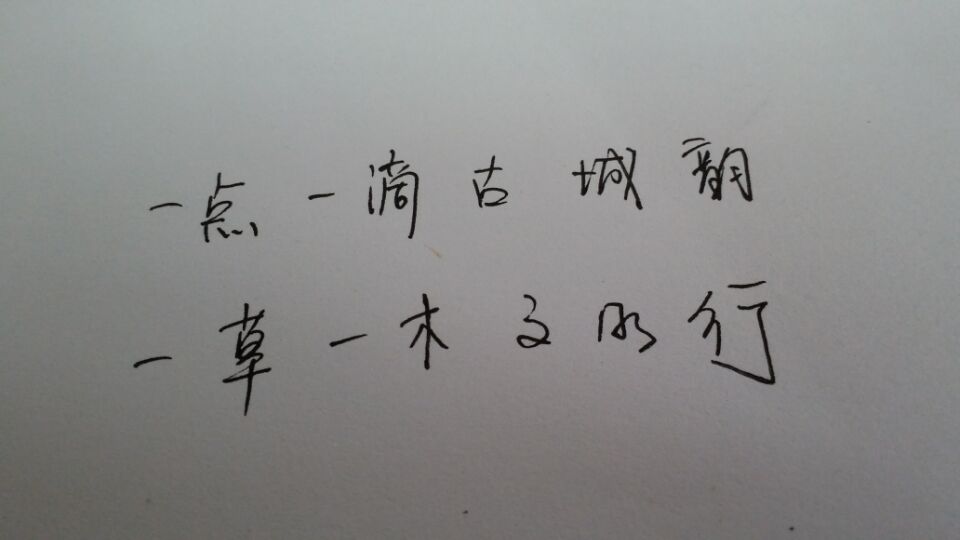 一点一滴古城韵
一草一木文明行